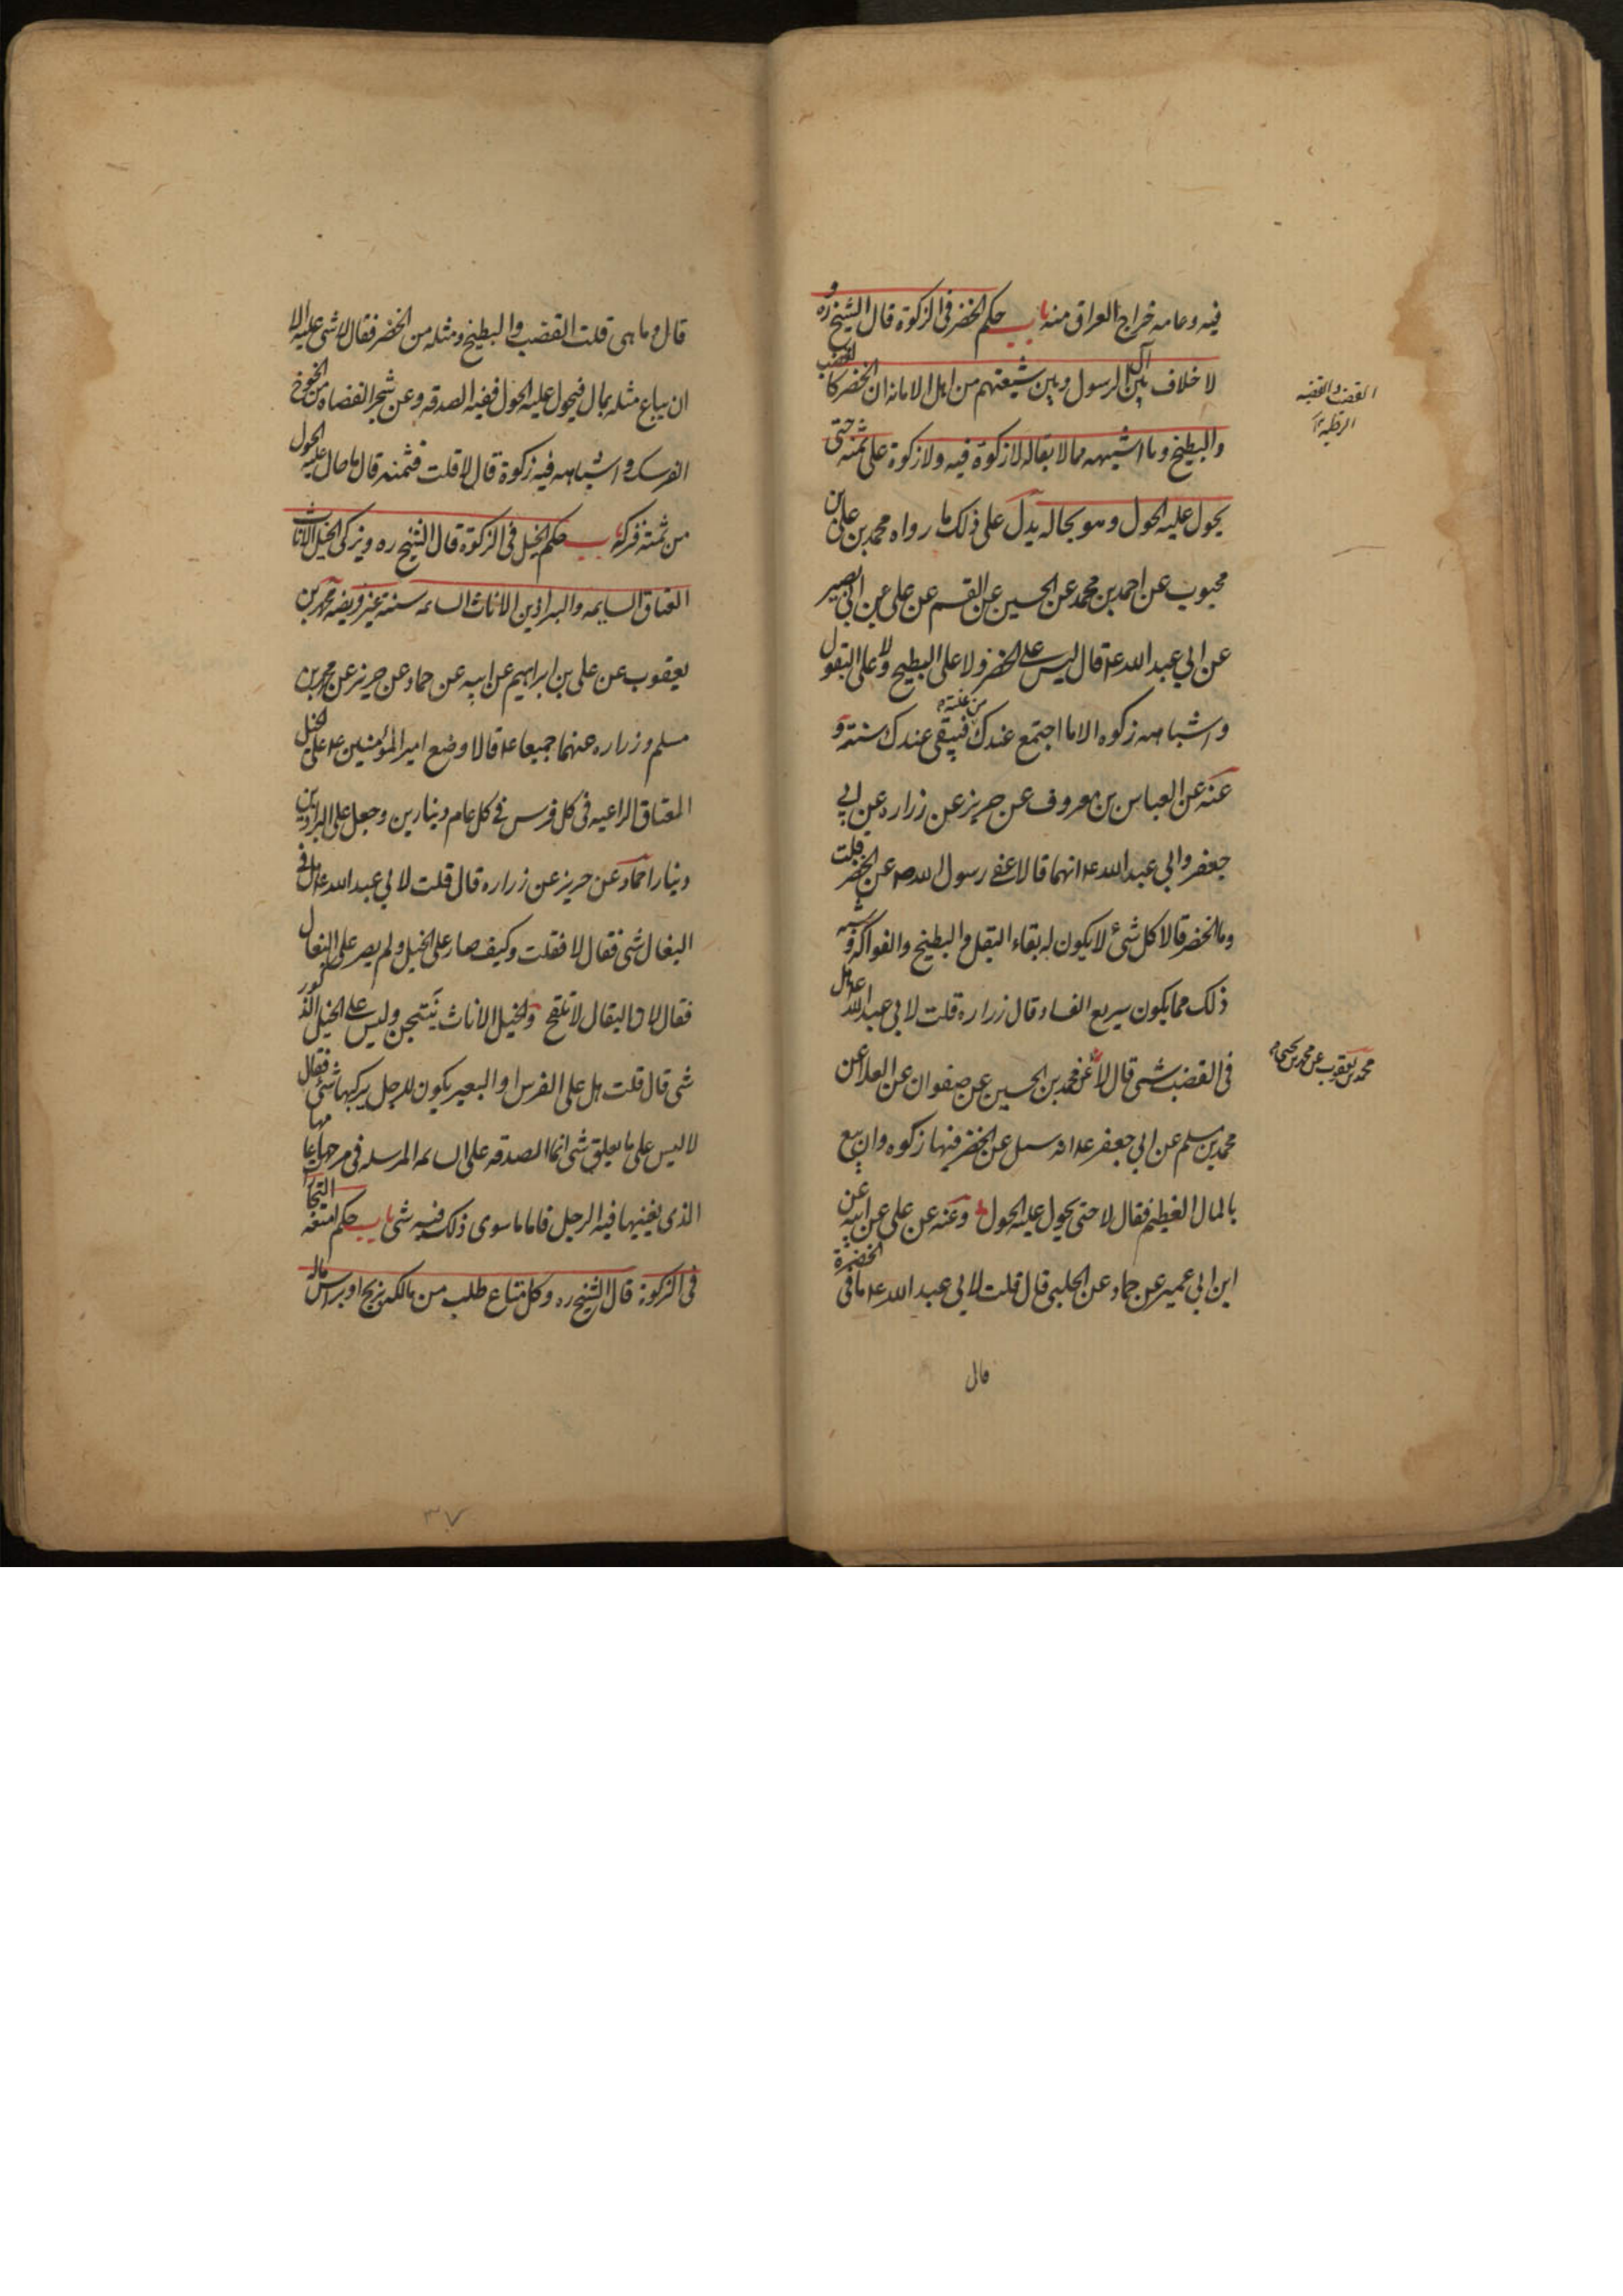 فيه وعامه خراج العراق منه باب حكم الخضر فى الزكوة قال الشيخ ره و
لا خلاف بين آل الرسول وبين شيعتهم من اهل الامامه ان الخضر كالقضب
والبطيخ وما اشبهه مما لا بقاله لا زكوة فيه ولا زكوة على ثمنه حتى
يحول عليه الحول وهو بحاله يدل على ذلك ما رواه محمد بن على بن
محبوب عن احمد بن محمد عن الحسين عن القسم عن على عن ابى بصير
عن ابي عبد الله عه قال ليس على الخضر ولا على البطيخ ولا على البقول
واشباهه زكوه الا ما اجتمع عندك من غلته فيبقى عندك سنته و
عنه عن العباس بن معروف عن حريز عن زراره عن ابي
جعفر وابي عبد الله عه انهما قالا عفى رسول الله صه عن الخضر قلت
وما الخضر قالا كل شئ لا يكون له بقاء البقل والبطيخ والفواكه وشبه
ذلك مما يكون سريع الفساد قال زراره قلت لابي عبد الله عه هل
فى القضب شى قال لا عن محمد بن الحسين عن صفوان عن العلا عن
محمد بن مسلم عن ابي جعفر عه انه سىل عن الخضر فيها زكوه وان بيع
بالمال العظيم فقال لا حتى يحول عليه الحول وعنه عن على عن ابيه عن
ابن ابي عمير عن حماد عن الحلبى قال قلت لابي عبد الله عه ما فى الخضرة
قال
القضب والقضبه
الرطبه
محمد بن يعقوب عن محمد بن يحيى
قال وما هى قلت القضب والبطيخ ومثله من الخضر فقال لا شى عليه الا
ان يباع مثله بمال فيحول عليه الحول ففيه الصدقه وعن شجر الغضاه من الخوخ
الفرسك واشباهه فيه زكوة قال لا قلت فثمنه قال ما حال عليه الحول
من ثمنه فزكه باب حكم الخيل فى الزكوة قال الشيخ ره ويزكى الخيل الاناث
العتاق السايمه والبراذين الاناث السائمه سنة غير فريضه محمد بن
يعقوب عن على بن ابراهيم عن ابيه عن حماد عن حريز عن محمد بن
مسلم وزراره عنهما جميعا عه قالا وضع امير المؤمنين عه على الخيل
العتاق الراعيه فى كل فرس فى كل عام دينارين وجعل على البراذين
دينارا حماد عن حريز عن زراره قال قلت لابي عبد الله عه هل فى
البغال شى فقال لا فقلت وكيف صار على الخيل ولم يصر على البغال
فقال لان البغال لا تلقح والخيل الاناث ينتجن وليس على الخيل الذكور
شى قال قلت هل على الفرس او البعير يكون للرجل يركبها شئ فقال
لا ليس على ما يعلق شى انما الصدقه على السائمه المرسله فى مرجها عامها
الذى يقتنيها فيه الرجل فاما ما سوى ذلك فليس فيه شى باب حكم امتعه التجارات
فى الزكوة قال الشيخ ره وكل متاع طلب من مالكه بربح او براس ماله
٣٧